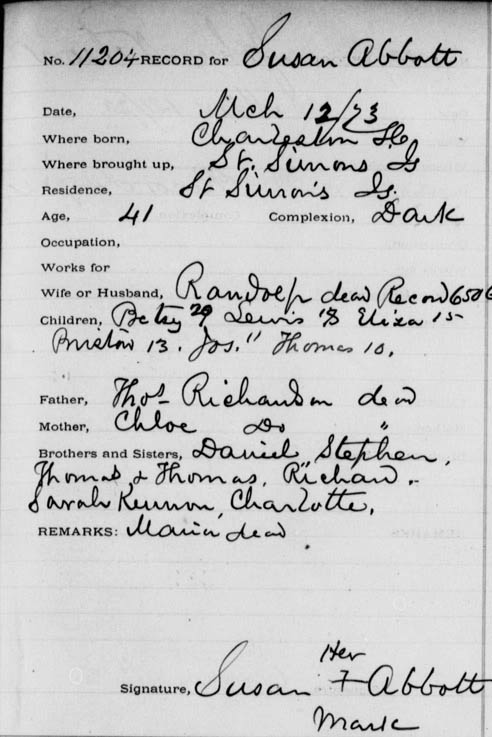 No. 11204 RECORD for Susan Abbott
Date, Mch 12/73
Where born, Charleston So
Where brought up, St. Simons Is
Residence, St Simon's Is.
Age, 41 Complexion, Dark
Occupation,
Works for
Wife or Husband, Randolph dead Record 6506
Children, Betsy 29 Lewis Eliza 15
Bristow 13. Jos. 11 Thomas 10.
Father, Thos Richardson dead
Mother, Chloe Do "
Brothers and Sisters, Daniel, Stephen,
Thomas & Thomas, Richard.
Sarah Kennon, Charlotte,
REMARKS: Maria dead
Her
Signature, Susan + Abbott
Mark